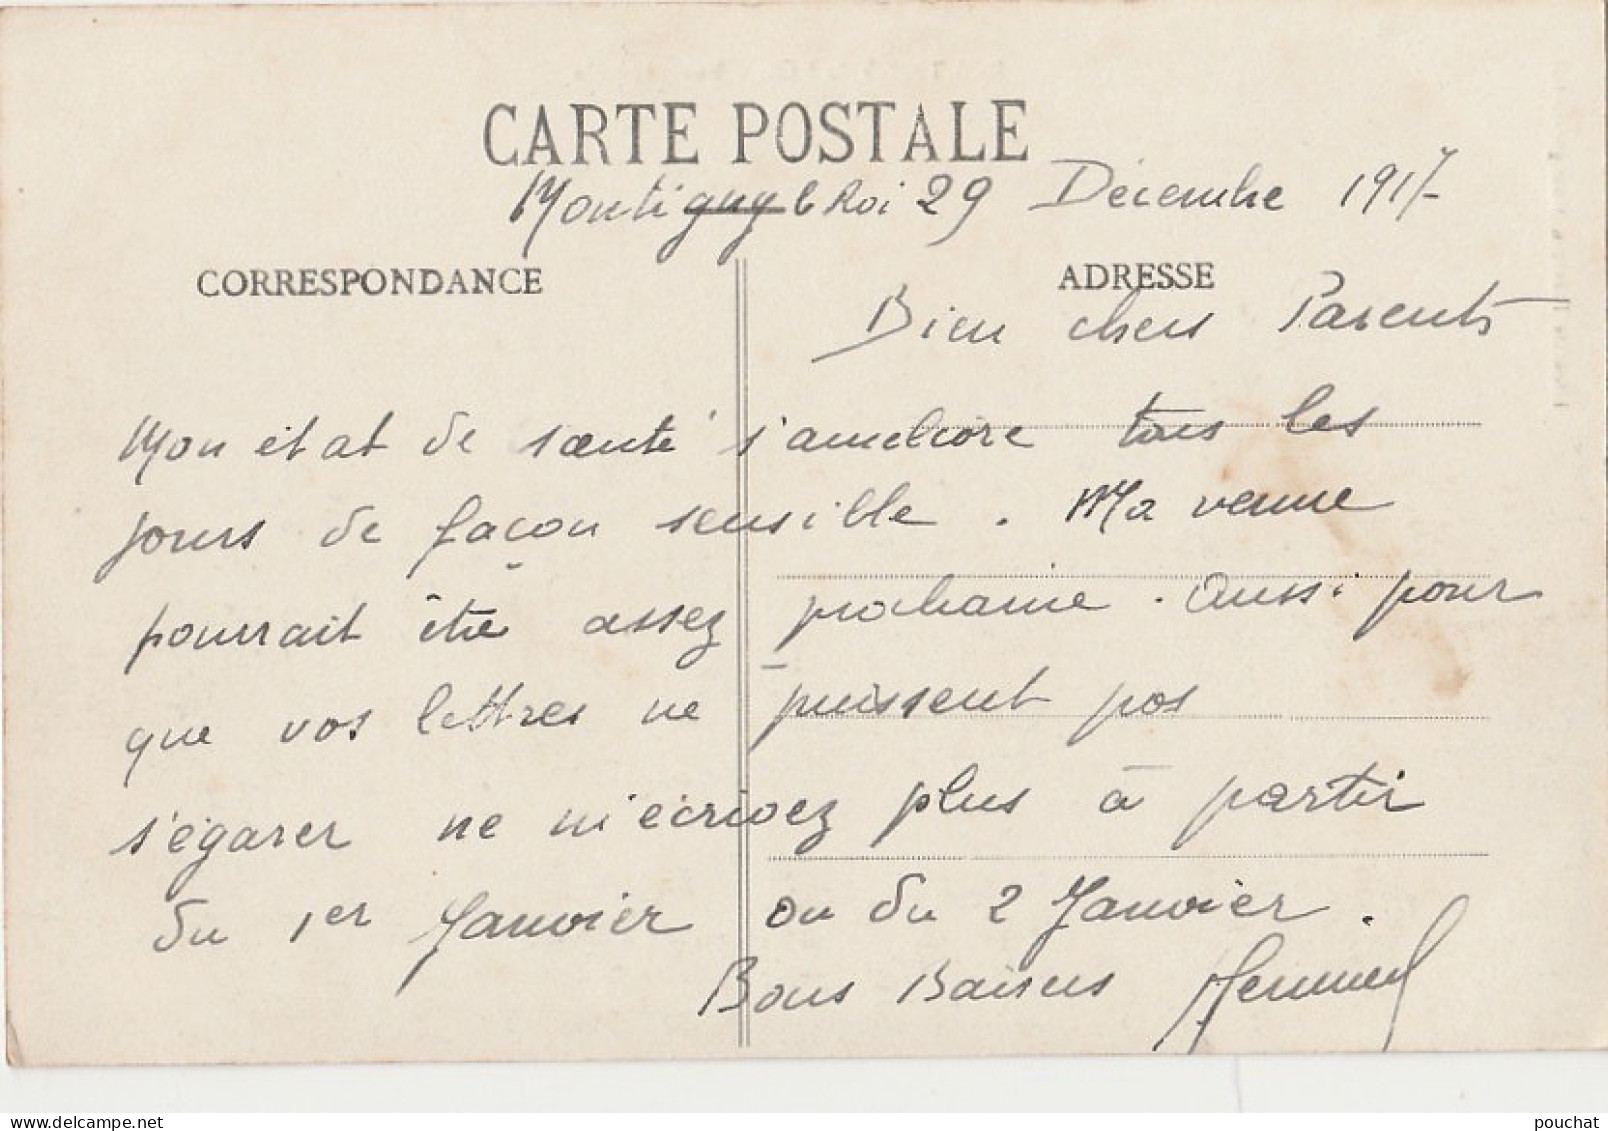 CARTE POSTALE
Montigny le Roi 29 Décembre 1917
CORRESPONDANCE
ADRESSE
Bien chers Parents
Mon état de santé s'améliore tous les
jours de façon sensible. Ma venue
pourrait être assez prochaine. Aussi pour
que vos lettres ne puissent pas
s'égarer ne m'écrivez plus à partir
du 1er Janvier ou du 2 Janvier.
Bons Baisers
pouchat